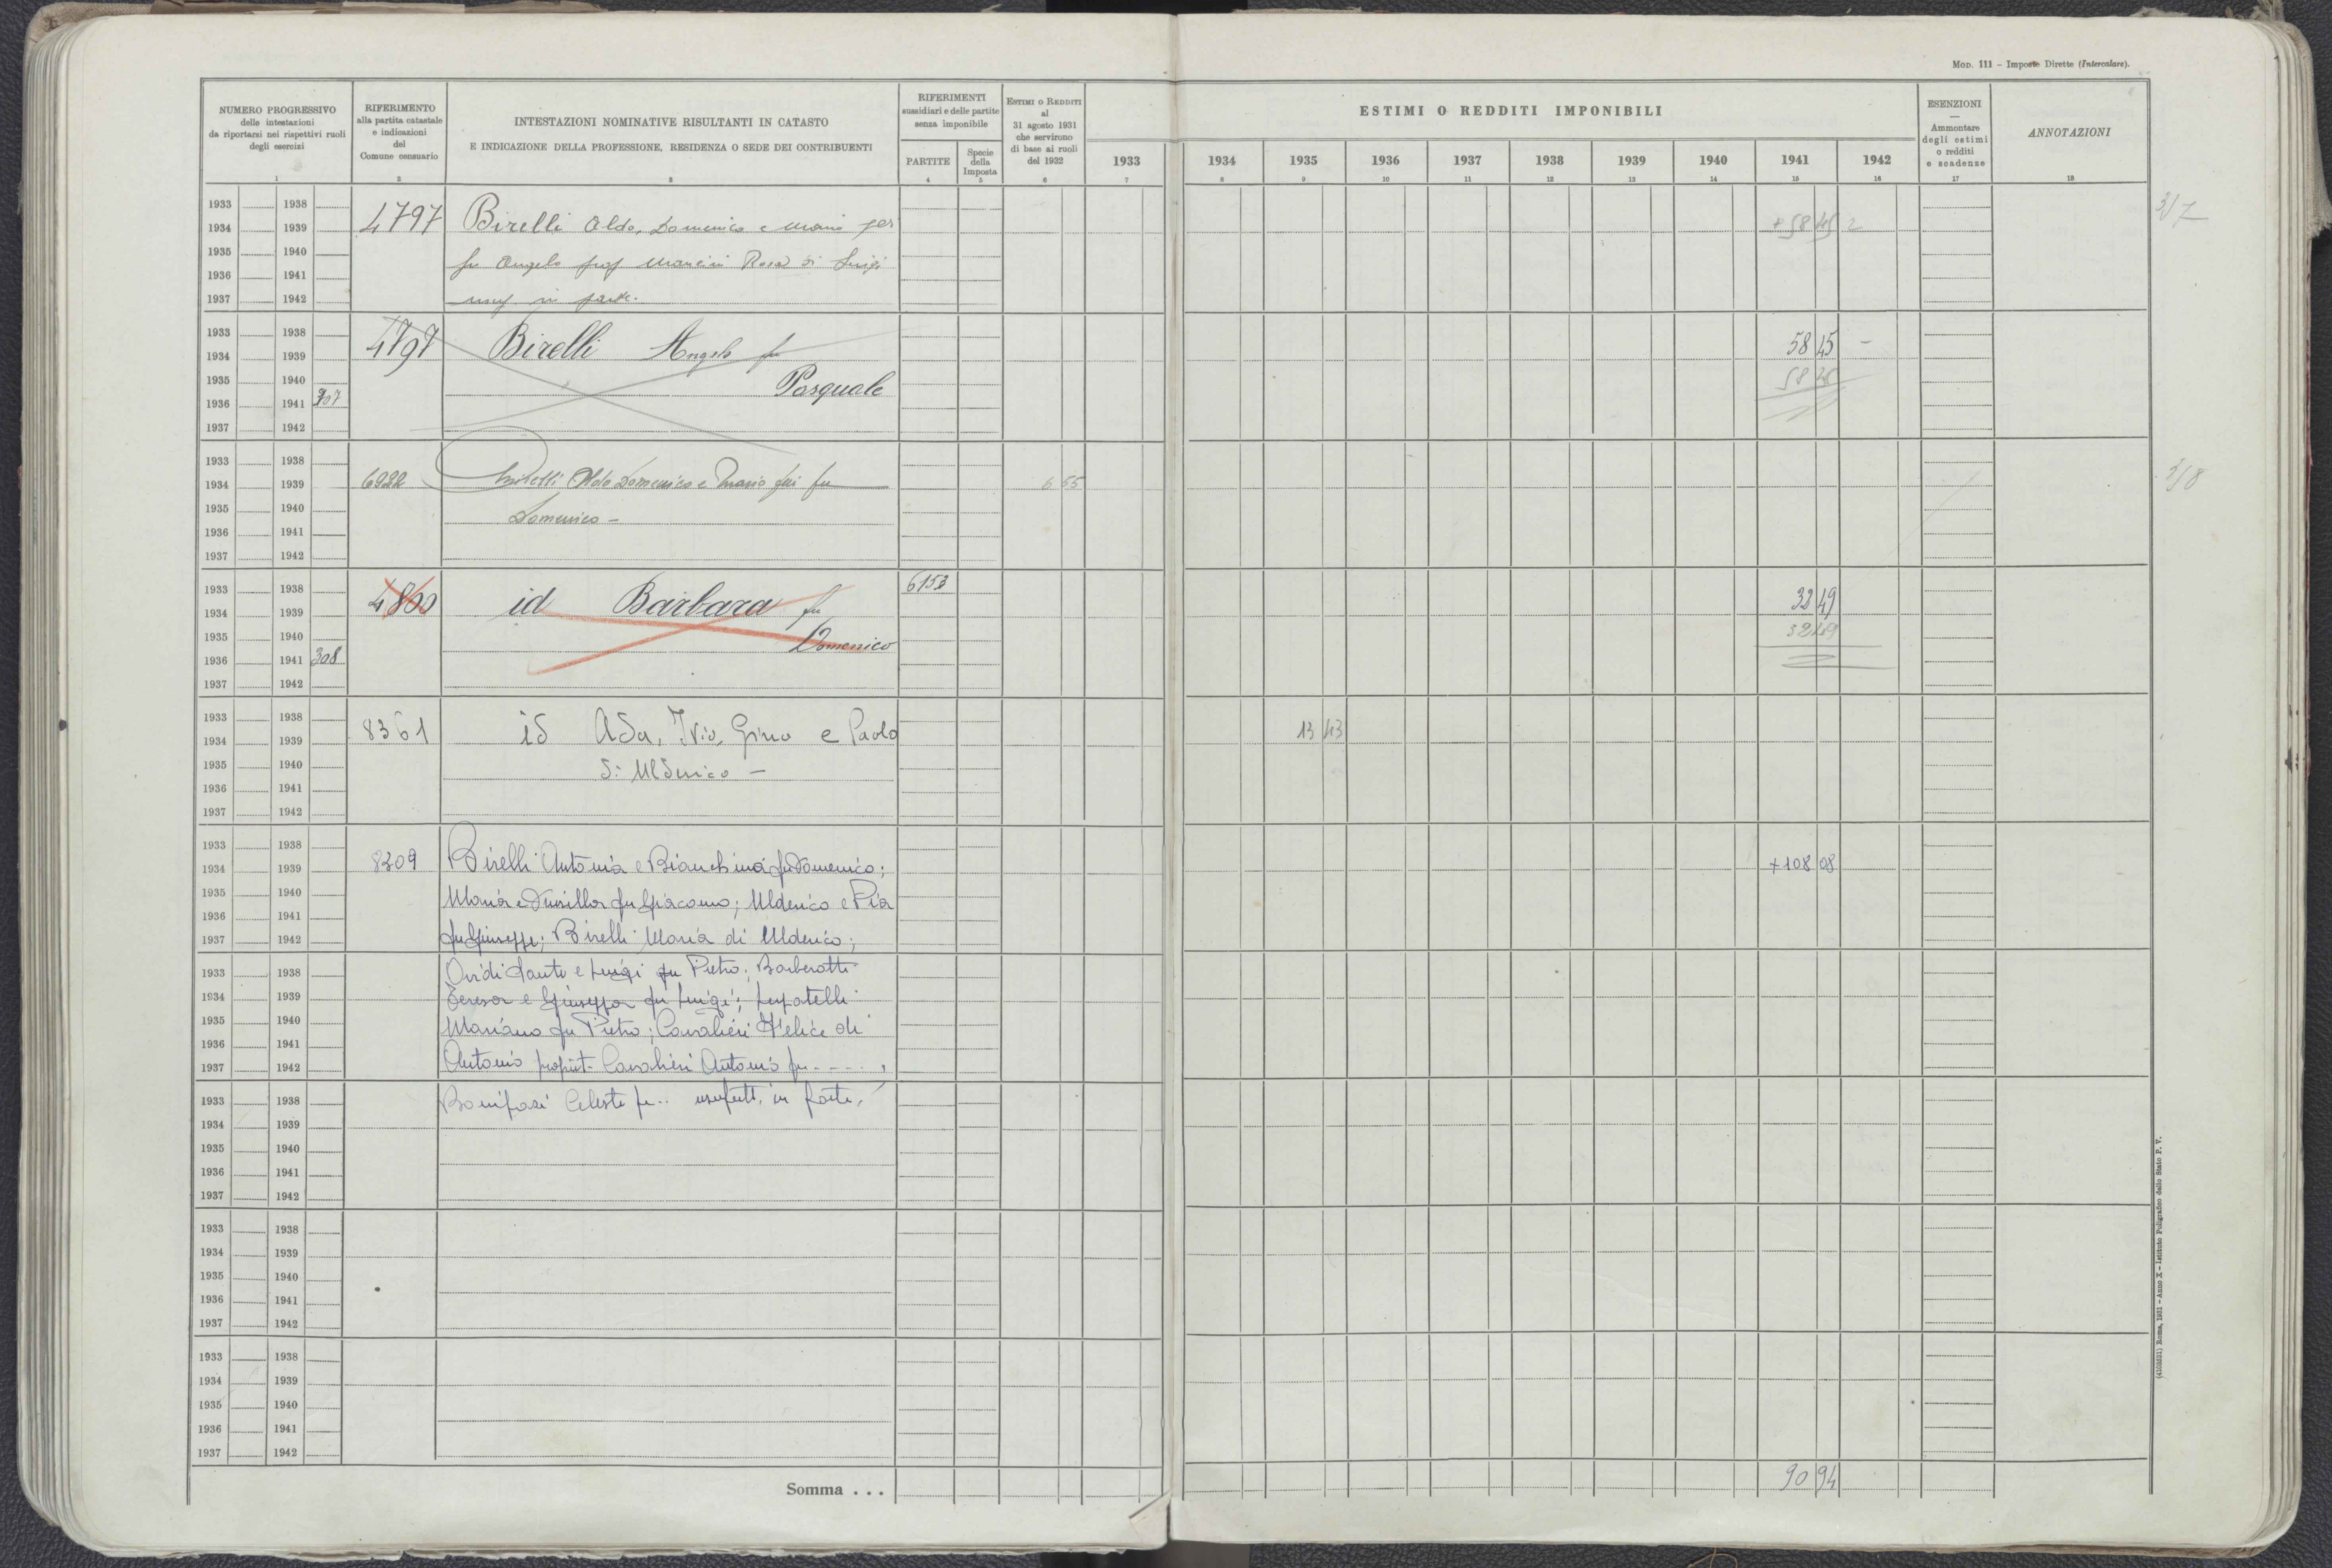 Mod. 111 – Imposte Dirette (Intercalare).
NUMERO PROGRESSIVO
delle intestazioni
da riportarsi nei rispettivi ruoli
degli esercizi
1
RIFERIMENTO
alla partita catastale
e indicazioni
del
Comune censuario
2
INTESTAZIONI NOMINATIVE RISULTANTI IN CATASTO
E INDICAZIONE DELLA PROFESSIONE, RESIDENZA O SEDE DEI CONTRIBUENTI
3
RIFERIMENTI
sussidiari e delle partite
senza imponibile
PARTITE
4
Specie
della
Imposta
5
Estimi o Redditi
al
31 agosto 1931
che servirono
di base ai ruoli
del 1932
6
ESTIMI O REDDITI IMPONIBILI
1933 1934 1935 1936 1937 1938 1939 1940 1941 1942
7 8 9 10 11 12 13 14 15 16
ESENZIONI
—
Ammontare
degli estimi
o redditi
e scadenze
17
ANNOTAZIONI
18
1933 1938
1934 1939 4797 Birelli Aldo, Domenico e Mario + 58 45
1935 1940 fu Angelo prop Mancini Rosa di Luigi
1936 1941
1937 1942 usuf in parte.
1933 1938
1934 1939 4797 Birelli Angelo fu 58 45 –
1935 1940 Pasquale 58 45
1936 1941 307
1937 1942
1933 1938
1934 1939 6922 Birelli Aldo Domenico e Mario fu 6 55
1935 1940 Domenico –
1936 1941
1937 1942
1933 1938 6153
1934 1939 4800 id Barbara fu 32 49
1935 1940 Domenico 32 49
1936 1941 308
1937 1942
1933 1938
1934 1939 8361 id Ada, Ivio, Gino e Paolo 13 43
1935 1940 di Ulderico –
1936 1941
1937 1942
1933 1938
1934 1939 8309 Birelli Antonia e Bianchina fu Domenico; + 108 08
1935 1940 Maria e Drusilla fu Giacomo; Ulderico e Pia
1936 1941
1937 1942 fu Giuseppe; Birelli Maria di Ulderico;
1933 1938 Dante e Luigi fu Pietro; Barberotti
1934 1939 Teresa e Giuseppa fu Luigi; Lupatelli
1935 1940 Mariano fu Pietro; Cavalieri Felice di
1936 1941
1937 1942 Antonio propriet- Cavalieri Antonio fu - - - -,
1933 1938 Bonifazi Celeste fu.. usufrutt. in parte.
1934 1939
1935 1940
1936 1941
1937 1942
1933 1938
1934 1939
1935 1940
1936 1941
1937 1942
1933 1938
1934 1939
1935 1940
1936 1941
1937 1942
Somma . . . 90 94
(4103531) Roma, 1931 – Anno X – Istituto Poligrafico dello Stato P. V.